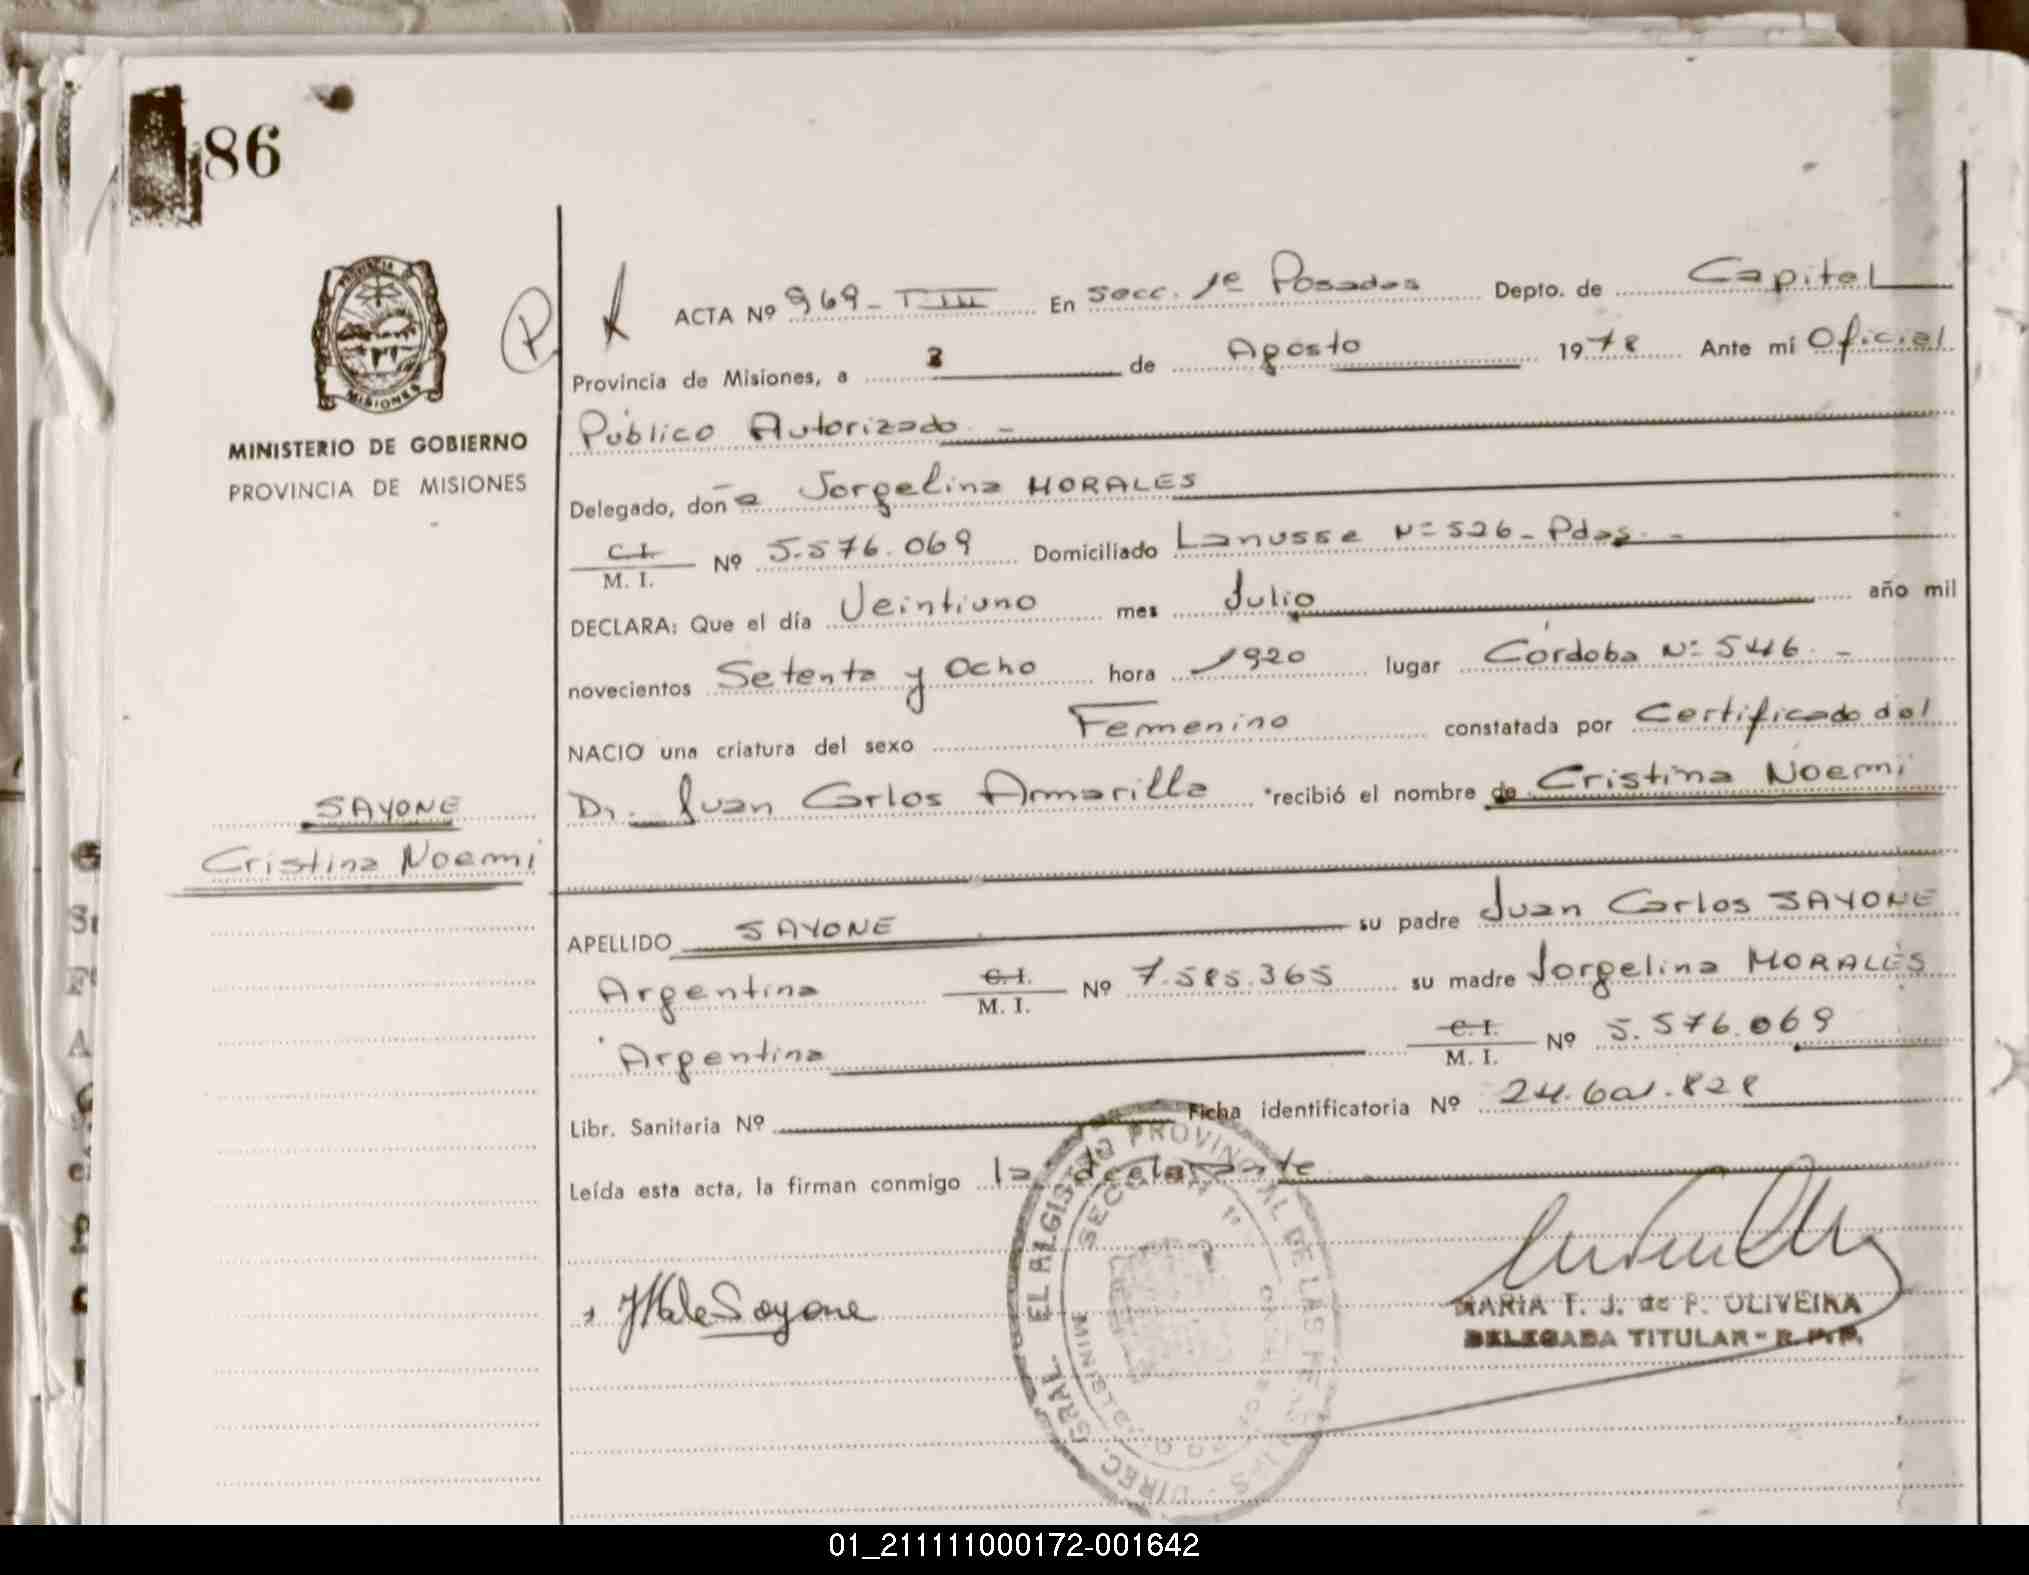 86
PROVINCIA DE
MISIONES
MINISTERIO DE GOBIERNO
PROVINCIA DE MISIONES
P
ACTA Nº 969 - T-III En Secc. 1ª Posadas Depto. de Capital
Provincia de Misiones, a 3 de Agosto 1978 Ante mí Oficial
Público Autorizado. -
Delegado, doña Jorgelina MORALES
C.I. / M. I. Nº 5.576.069 Domiciliado Lanusse Nº 526 - Pdas. -
DECLARA: Que el día Veintiuno mes Julio año mil
novecientos Setenta y Ocho hora 1920 lugar Córdoba Nº 546. -
NACIO una criatura del sexo Femenino constatada por Certificado del
Dr. Juan Carlos Amarilla recibió el nombre de Cristina Noemí
SAYONE
Cristina Noemí
APELLIDO SAYONE su padre Juan Carlos SAYONE
Argentina C.I. / M. I. Nº 7.585.365 su madre Jorgelina MORALES
Argentina C.I. / M. I. Nº 5.576.069
Libr. Sanitaria Nº Ficha identificatoria Nº 24.601.828
Leída esta acta, la firman conmigo la declarante
PROVINCIAL DE LAS
SECCION 1ª
GRAL.
DIREC.
Sayone
MARIA T. J. de P. OLIVEIRA
DELEGADA TITULAR - R.P.P.
01_211111000172-001642